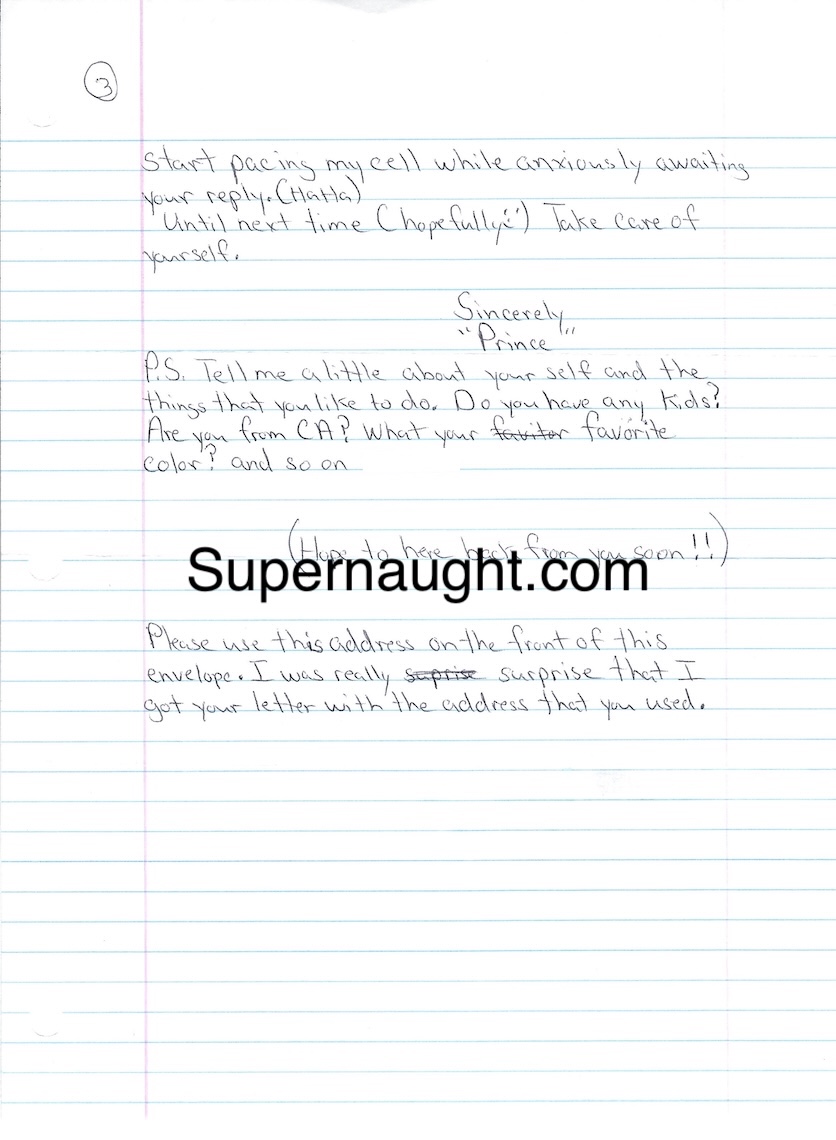 3
Start pacing my cell while anxiously awaiting
your reply. (HaHa)
Until next time (hopefully :') Take care of
yourself.
Sincerely
"Prince"
P.S. Tell me a little about your self and the
things that you like to do. Do you have any Kids?
Are you from CA? What your faviter favorite
color? and so on
(Hope to here back from you soon!!)
Supernaught.com
Please use this address on the front of this
envelope. I was really suprise surprise that I
got your letter with the address that you used.